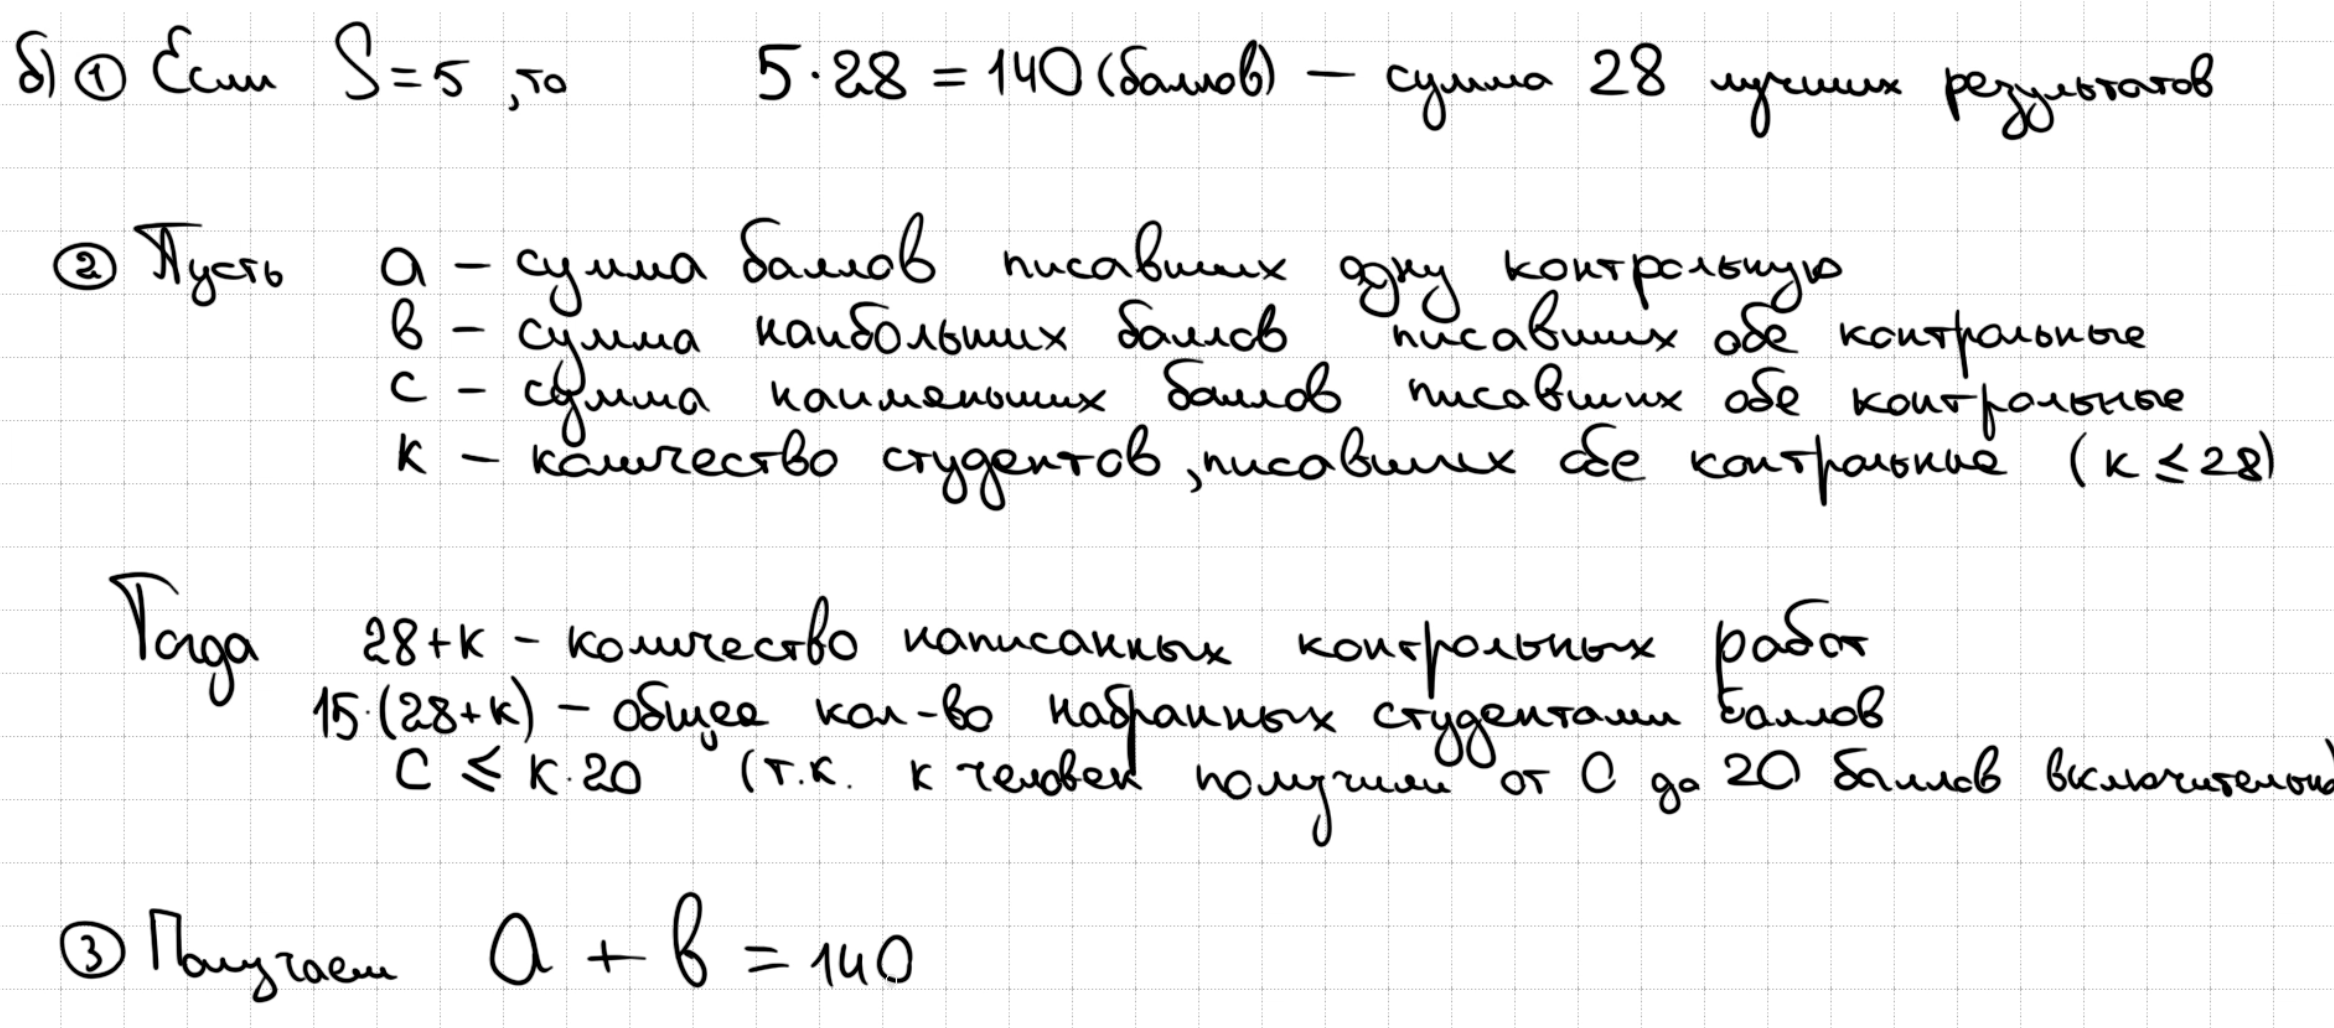 б) ① Если S = 5, то 5·28 = 140 (баллов) — сумма 28 лучших результатов
② Пусть a — сумма баллов писавших одну контрольную
в — сумма наибольших баллов писавших обе контрольные
с — сумма наименьших баллов писавших обе контрольные
к — количество студентов, писавших обе контрольные (к ≤ 28)
Тогда 28+к — количество написанных контрольных работ
15·(28+к) — общее кол-во набранных студентами баллов
С ≤ к·20 (т.к. к человек получили от 0 до 20 баллов включительно)
③ Получаем a + в = 140